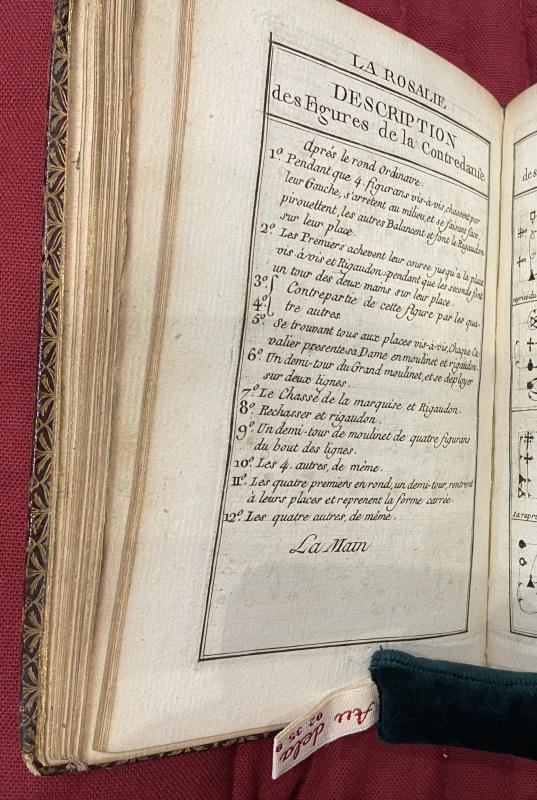 LA ROSALIE
DESCRIPTION
des Figures de la Contredanse
Aprés le rond Ordinaire.
1º. Pendant que 4. figurans vis-à-vis, chassent par
leur Gauche, s'arretent au milieu, et se faisant face,
pirouettent, les autres Balancent et font le Rigaudon
sur leur place.
2º. Les Premiers achevent leur course jusqu'a la place
vis-à-vis et Rigaudon: pendant que les seconds font
un tour des deux mains sur leur place.
3º. Contrepartie de cette figure par les qua-
4º. tre autres.
5º. Se trouvant tous aux places vis-à-vis, Chaque Ca-
valier presente sa Dame en moulinet et rigaudon.
6º. Un demi-tour du Grand moulinet, et se deployer
sur deux lignes.
7º. Le Chassé de la marquise et Rigaudon.
8º. Rechasser et rigaudon.
9º. Un demi-tour de moulinet de quatre figurans
du bout des lignes.
10º. Les 4. autres, de même.
11º. Les quatre premiers en rond, un demi-tour, rentrent
à leurs places et reprenent la forme carrée.
12º. Les quatre autres, de même.
La Main
des
Au dela
02.35.